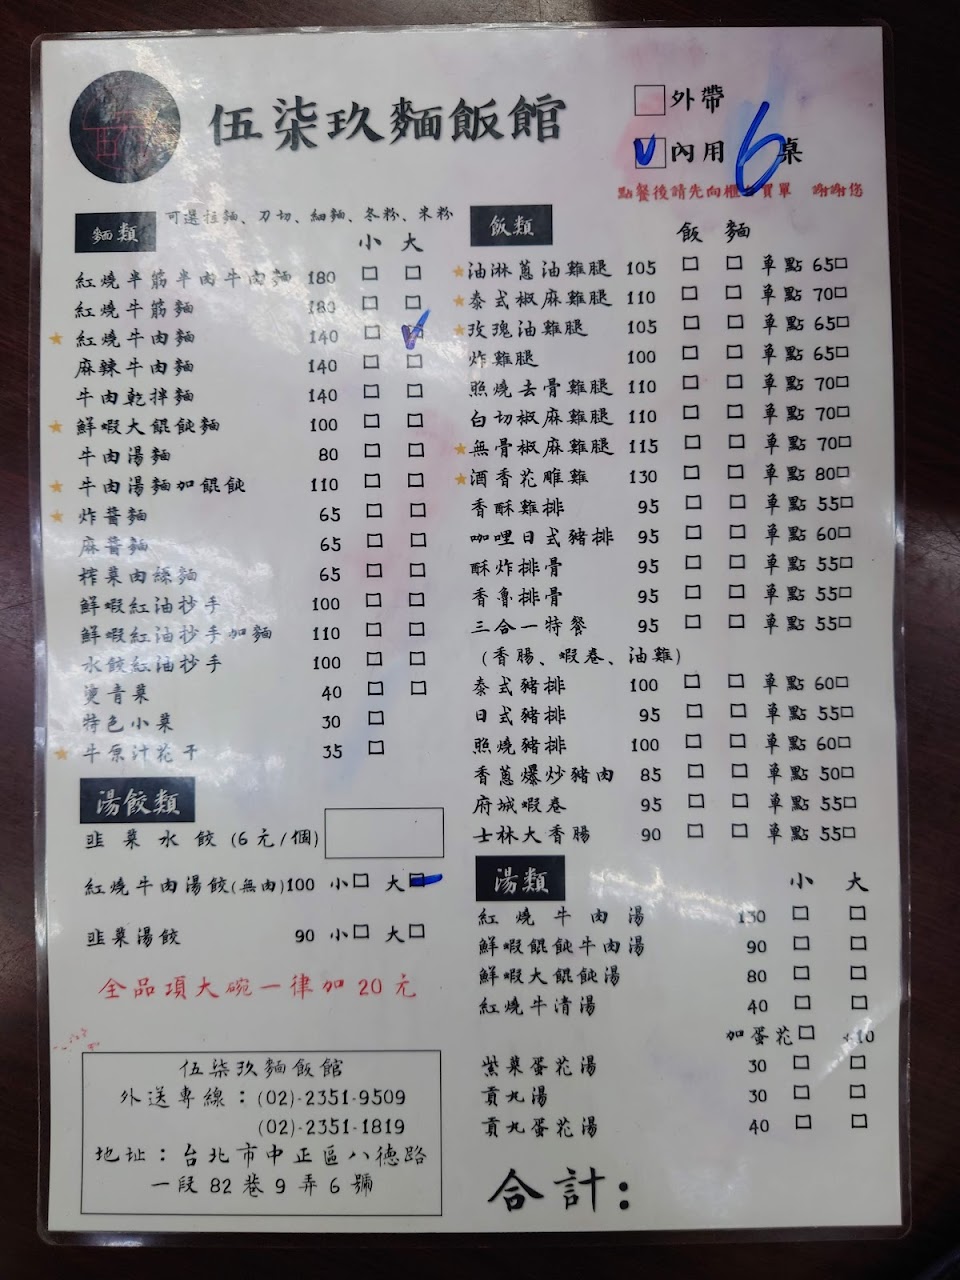 伍柒玖麵飯館
外帶
內用 6 桌
點餐後請先向櫃台買單 謝謝您
麵類 可選拉麵、刀切、細麵、冬粉、米粉
小 大
紅燒半筋半肉牛肉麵 180
紅燒牛筋麵 180
紅燒牛肉麵 140
麻辣牛肉麵 140
牛肉乾拌麵 140
鮮蝦大餛飩麵 100
牛肉湯麵 80
牛肉湯麵加餛飩 110
炸醬麵 65
麻醬麵 65
榨菜肉絲麵 65
鮮蝦紅油抄手 100
鮮蝦紅油抄手加麵 110
水餃紅油抄手 100
燙青菜 40
特色小菜 30
牛原汁花干 35
湯餃類
韭菜水餃(6元/個)
紅燒牛肉湯餃(無肉)100 小 大
韭菜湯餃 90 小 大
全品項大碗一律加20元
伍柒玖麵飯館
外送專線：(02)-2351-9509
(02)-2351-1819
地址：台北市中正區八德路
一段82巷9弄6號
飯類
飯 麵
油淋蔥油雞腿 105 單點 65
泰式椒麻雞腿 110 單點 70
玫瑰油雞腿 105 單點 65
炸雞腿 100 單點 65
照燒去骨雞腿 110 單點 70
白切椒麻雞腿 110 單點 70
無骨椒麻雞腿 115 單點 70
酒香花雕雞 130 單點 80
香酥雞排 95 單點 55
咖哩日式豬排 95 單點 60
酥炸排骨 95 單點 55
香魯排骨 95 單點 55
三合一特餐 95 單點 55
(香腸、蝦卷、油雞)
泰式豬排 100 單點 60
日式豬排 95 單點 55
照燒豬排 100 單點 60
香蔥爆炒豬肉 85 單點 50
府城蝦卷 95 單點 55
士林大香腸 90 單點 55
湯類
小 大
紅燒牛肉湯 130
鮮蝦餛飩牛肉湯 90
鮮蝦大餛飩湯 80
紅燒牛清湯 40
加蛋花 +10
紫菜蛋花湯 30
貢丸湯 30
貢丸蛋花湯 40
合計：